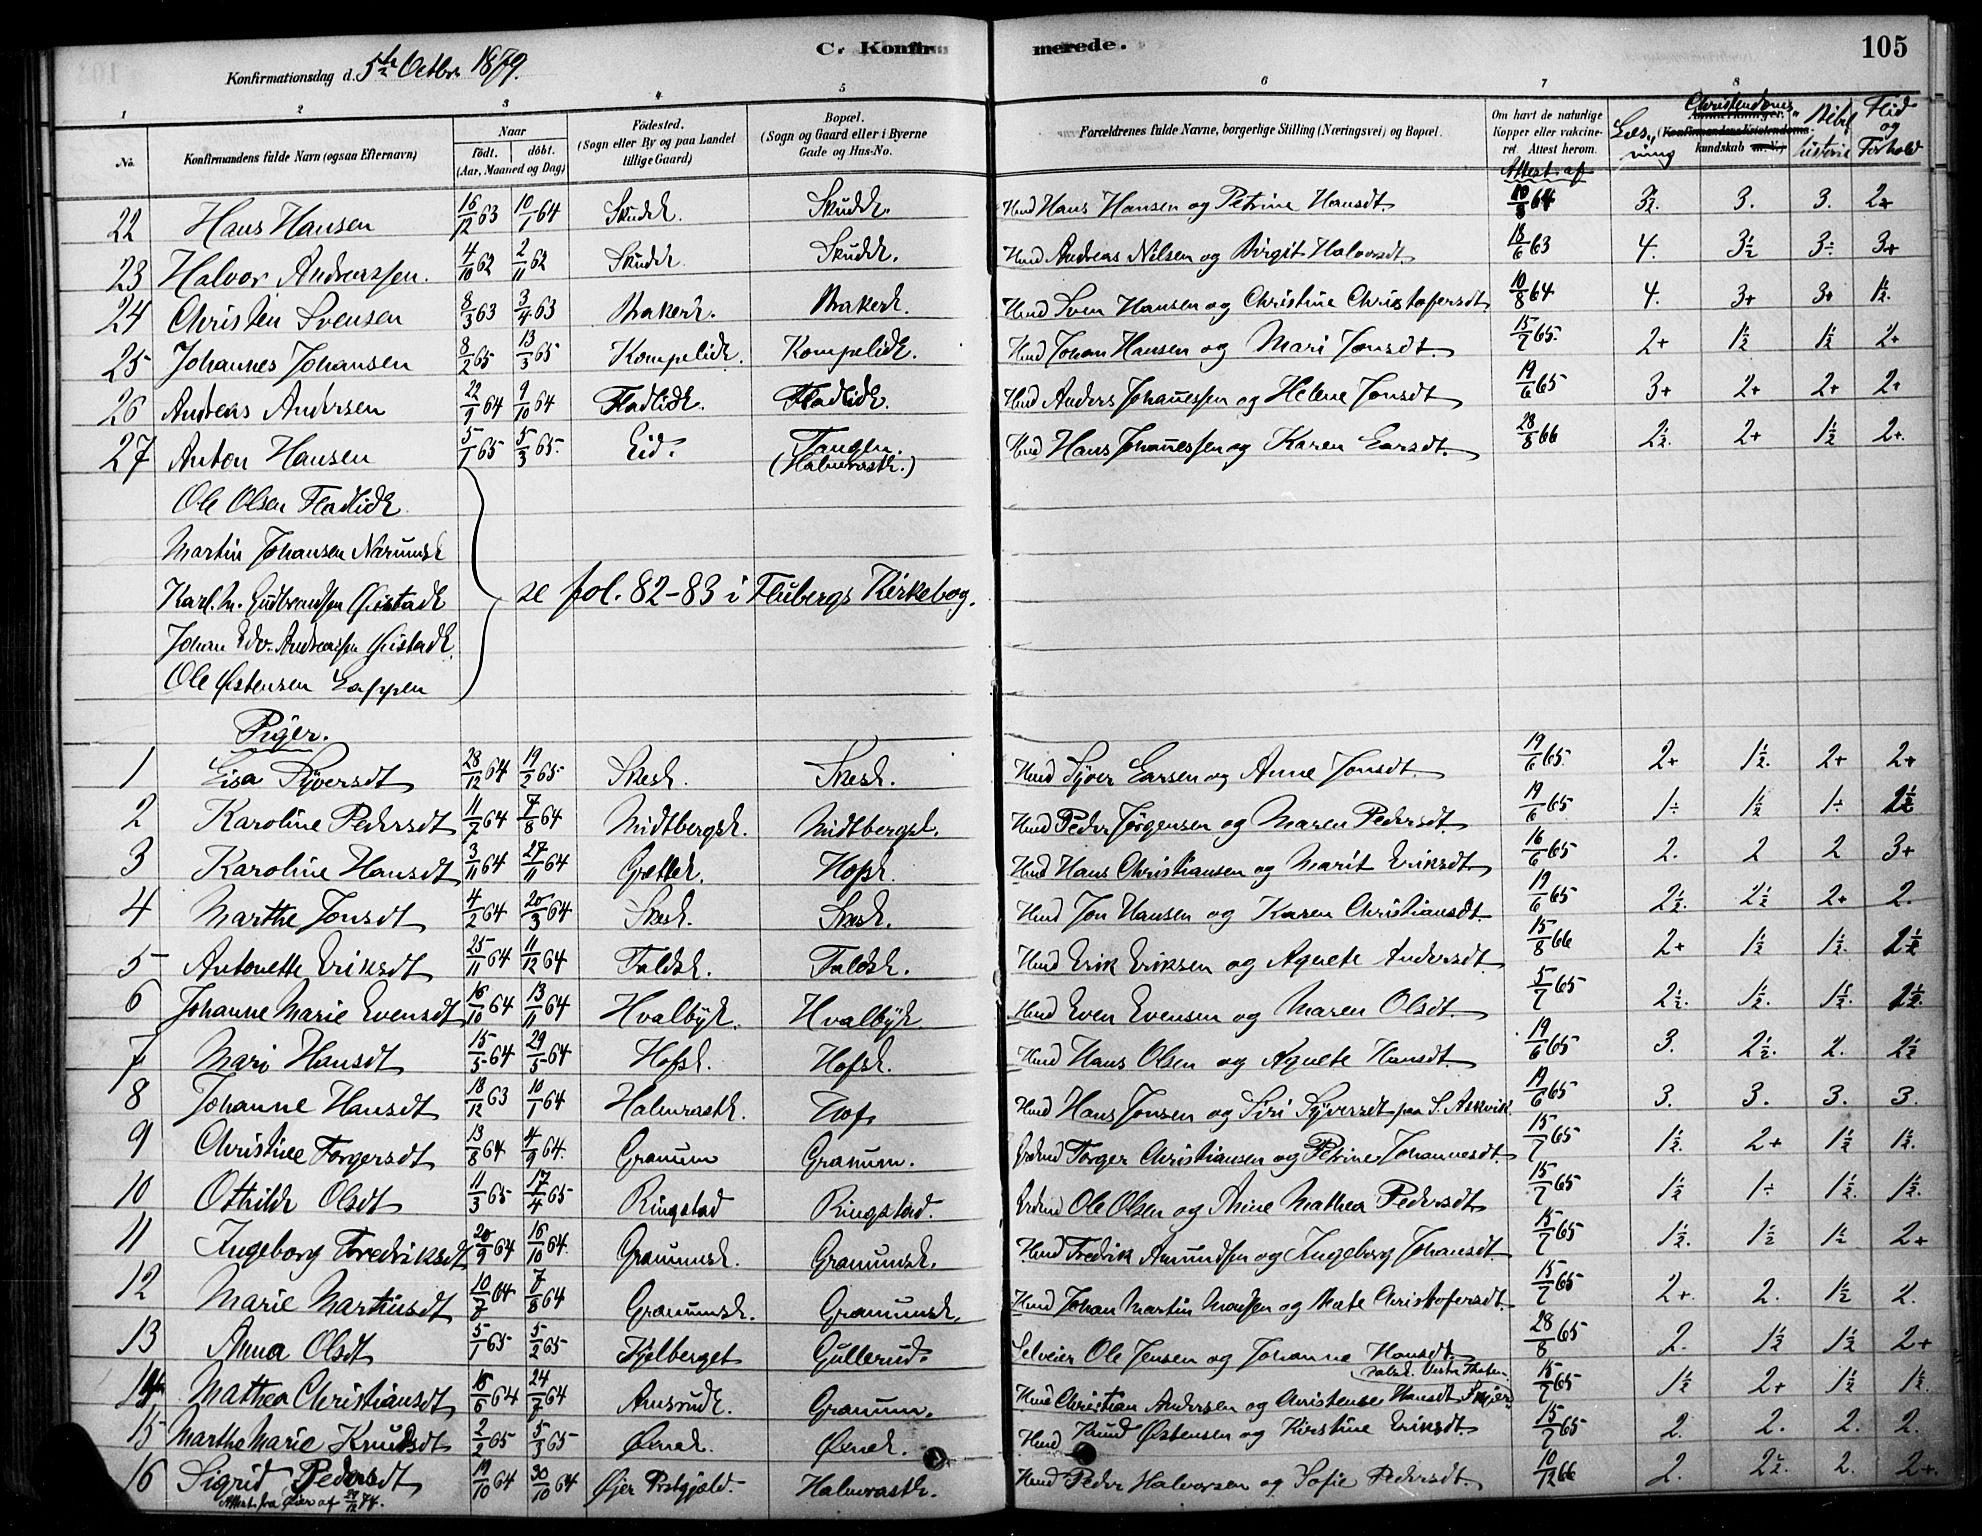 C. Konfirmerede. 105
Konfirmationsdag d. 5te Octbr. 1879.
1 2 3 4 5 6 7 8
No. Konfirmandens fulde Navn (ogsaa Efternavn) Naar født. døbt. (Aar, Maaned og Dag) Födested. (Sogn eller By og paa Landet tillige Gaard) Bopæl. (Sogn og Gaard eller i Byerne Gade og Hus-No. Forældrenes fulde Navne, borgerlige Stilling (Næringsvei) og Bopæl. Om havt de naturlige Kopper eller vaccineret. Attest herom. Læsning Christendoms kundskab Bibelhistorie Flid og Forhold
Attest af
22 Hans Hansen 16/12 63 10/1 64 Skudk. Skudk. Hmd Hans Hansen og Petrine Hansdt. 10/8 64 3½. 3. 3. 2+
23 Halvor Andreassen. 4/10 62 2/11 62 Skudk. Skudk. Hmd Andreas Nilsen og Birgit Halvorsdt. 18/6 63 4. 3½ 3÷ 3+
24 Christen Svensen 8/3 63 3/4 63 Brakerk. Brakerk. Hmd Sven Hansen og Christine Christofersdt 10/8 64 4. 3+ 3+ 1½.
25 Johannes Johansen 8/2 65 13/3 65 Kompelidk. Kompelidk. Hmd Johan Hansen og Mari Jonsdt. 15/7 65. 2+ 1½ 1½ 2+
26 Andreas Andersen 22/9 64 9/10 64 Fladlidk. Fladlidk. Hmd Anders Johanessen og Helene Jonsdt 19/6 65 3+ 2+ 2+ 2+
27 Anton Hansen 5/1 65 5/3 65. Eid. Tangen. (Halmrastk.) Hmd Hans Johanessen og Karen Larsdt. 28/8 66 2½. 2+ 1½ 2+.
Ole Olsen Fladlidk
Martin Johansen Narumsk
Karl M. Gudbrandsen Øistadk se fol. 82-83 i Flubergs Kirkebog.
Johan Edv. Andreassen Øistadk.
Ole Østensen Lappen
Piger.
1 Lisa Syversdt 28/12 64 19/2 65 Skesk. Skesk. Hmd Syver Larsen og Anne Jonsdt. 19/6 65. 2+ 1½. 2+ 2+
2 Karoline Pedersdt 11/7 64 7/8 64 Midtbergsk. Midtbergsk. Hmd Peder Jørgensen og Maren Pedersdt. 19/6 65 1÷ 1½ 1÷ 1½
3 Karoline Hansdt 3/11 64 27/11 64 Grættek. Hofsk. Hmd Hans Christiansen og Marit Eriksdt. 16/6 65 2. 2 2 3+
4 Marthe Jonsdt 4/2 64 20/3 64 Skesk. Skesk. Hmd Jon Hansen og Karen Christiansdt. 19/6 65 2½. 2½ 2+ 2.
5 Antonette Eriksdt 25/11 64 11/12 64 Faldsk. Faldsk. Hmd Erik Eriksen og Agnete Andersdt. 15/8 66 2+ 1½ 1½. 1½
6 Johanne Marie Evensdt 16/10 64 13/11 64 Hvalbyk. Hvalbyk Hmd Even Evensen og Maren Olsdt. 5/7 65 2½. 1½. 1½. 1½.
7 Mari Hansdt 15/5 64 29/5 64 Hofsk. Hofsk. Hmd Hans Olsen og Agnete Hansdt. 19/6 65 3. 2½. 2. 2½
8 Johanne Hansdt 18/12 63 10/1 64 Halmrastk. Hof. Hmd Hans Jonsen og Siri Syversdt paa S. Askvik 19/6 65 3. 3. 3. 3.
9 Christine Torgersdt 13/8 64 4/9 64. Granum Granum. Grdmd Torger Christiansen og Petrine Johannesdt. 15/7 65 1½. 2+ 1½ 1½.
10 Othilde Olsdt 11/3 65 17/4 65 Ringstad Ringstad. Grdmd Ole Olsen og Anne Mathea Pedersdt. 15/7 65 1½ 1÷ 1½. 1½.
11 Ingeborg Fredriksdt 20/9 64 16/10 64. Granumsk. Granumsk. Hmd Fredrik Amundsen og Ingeborg Johansdt 15/7 65 1½. 1½ 1½ 2+
12 Marie Martinsdt 10/7 64 7/8 64 Granumsk. Granumsk. Hmd Johan Martin Monsen og Kate Christofersdt. 15/7 65 2+. 2. 1½ 2.
13 Anna Olsdt 5/1 65 5/2 65 Kjelberget Gullerud. Selveier Ole Jensen og Johanne Hansdt. 28/8 65 2. 1½ 1½ 2+
14 Mathea Christiansdt 15/6 64 24/7 64 Amsrudk. Granum. Hmd Christian Andersen og Christense Hansdt 15/7 65 1½ 2+ 1½ 1½.
15 Marthe Marie Knudsdt 2/2 65 5/3 65 Ørnek. Ørnek. Hmd Knud Østensen og Kirstine Eriksdt. 15/7 65 2. 2. 2. 2.
16 Sigrid Pedersdt 19/10 64 30/10 64 Øjer Prstgjæld. Halmrastk. Hmd Peder Halvorsen og Sofie Pedersdt. 10/12 66 2. 2½. 2. 2+.
Attest fra Øier af 29/12 74.